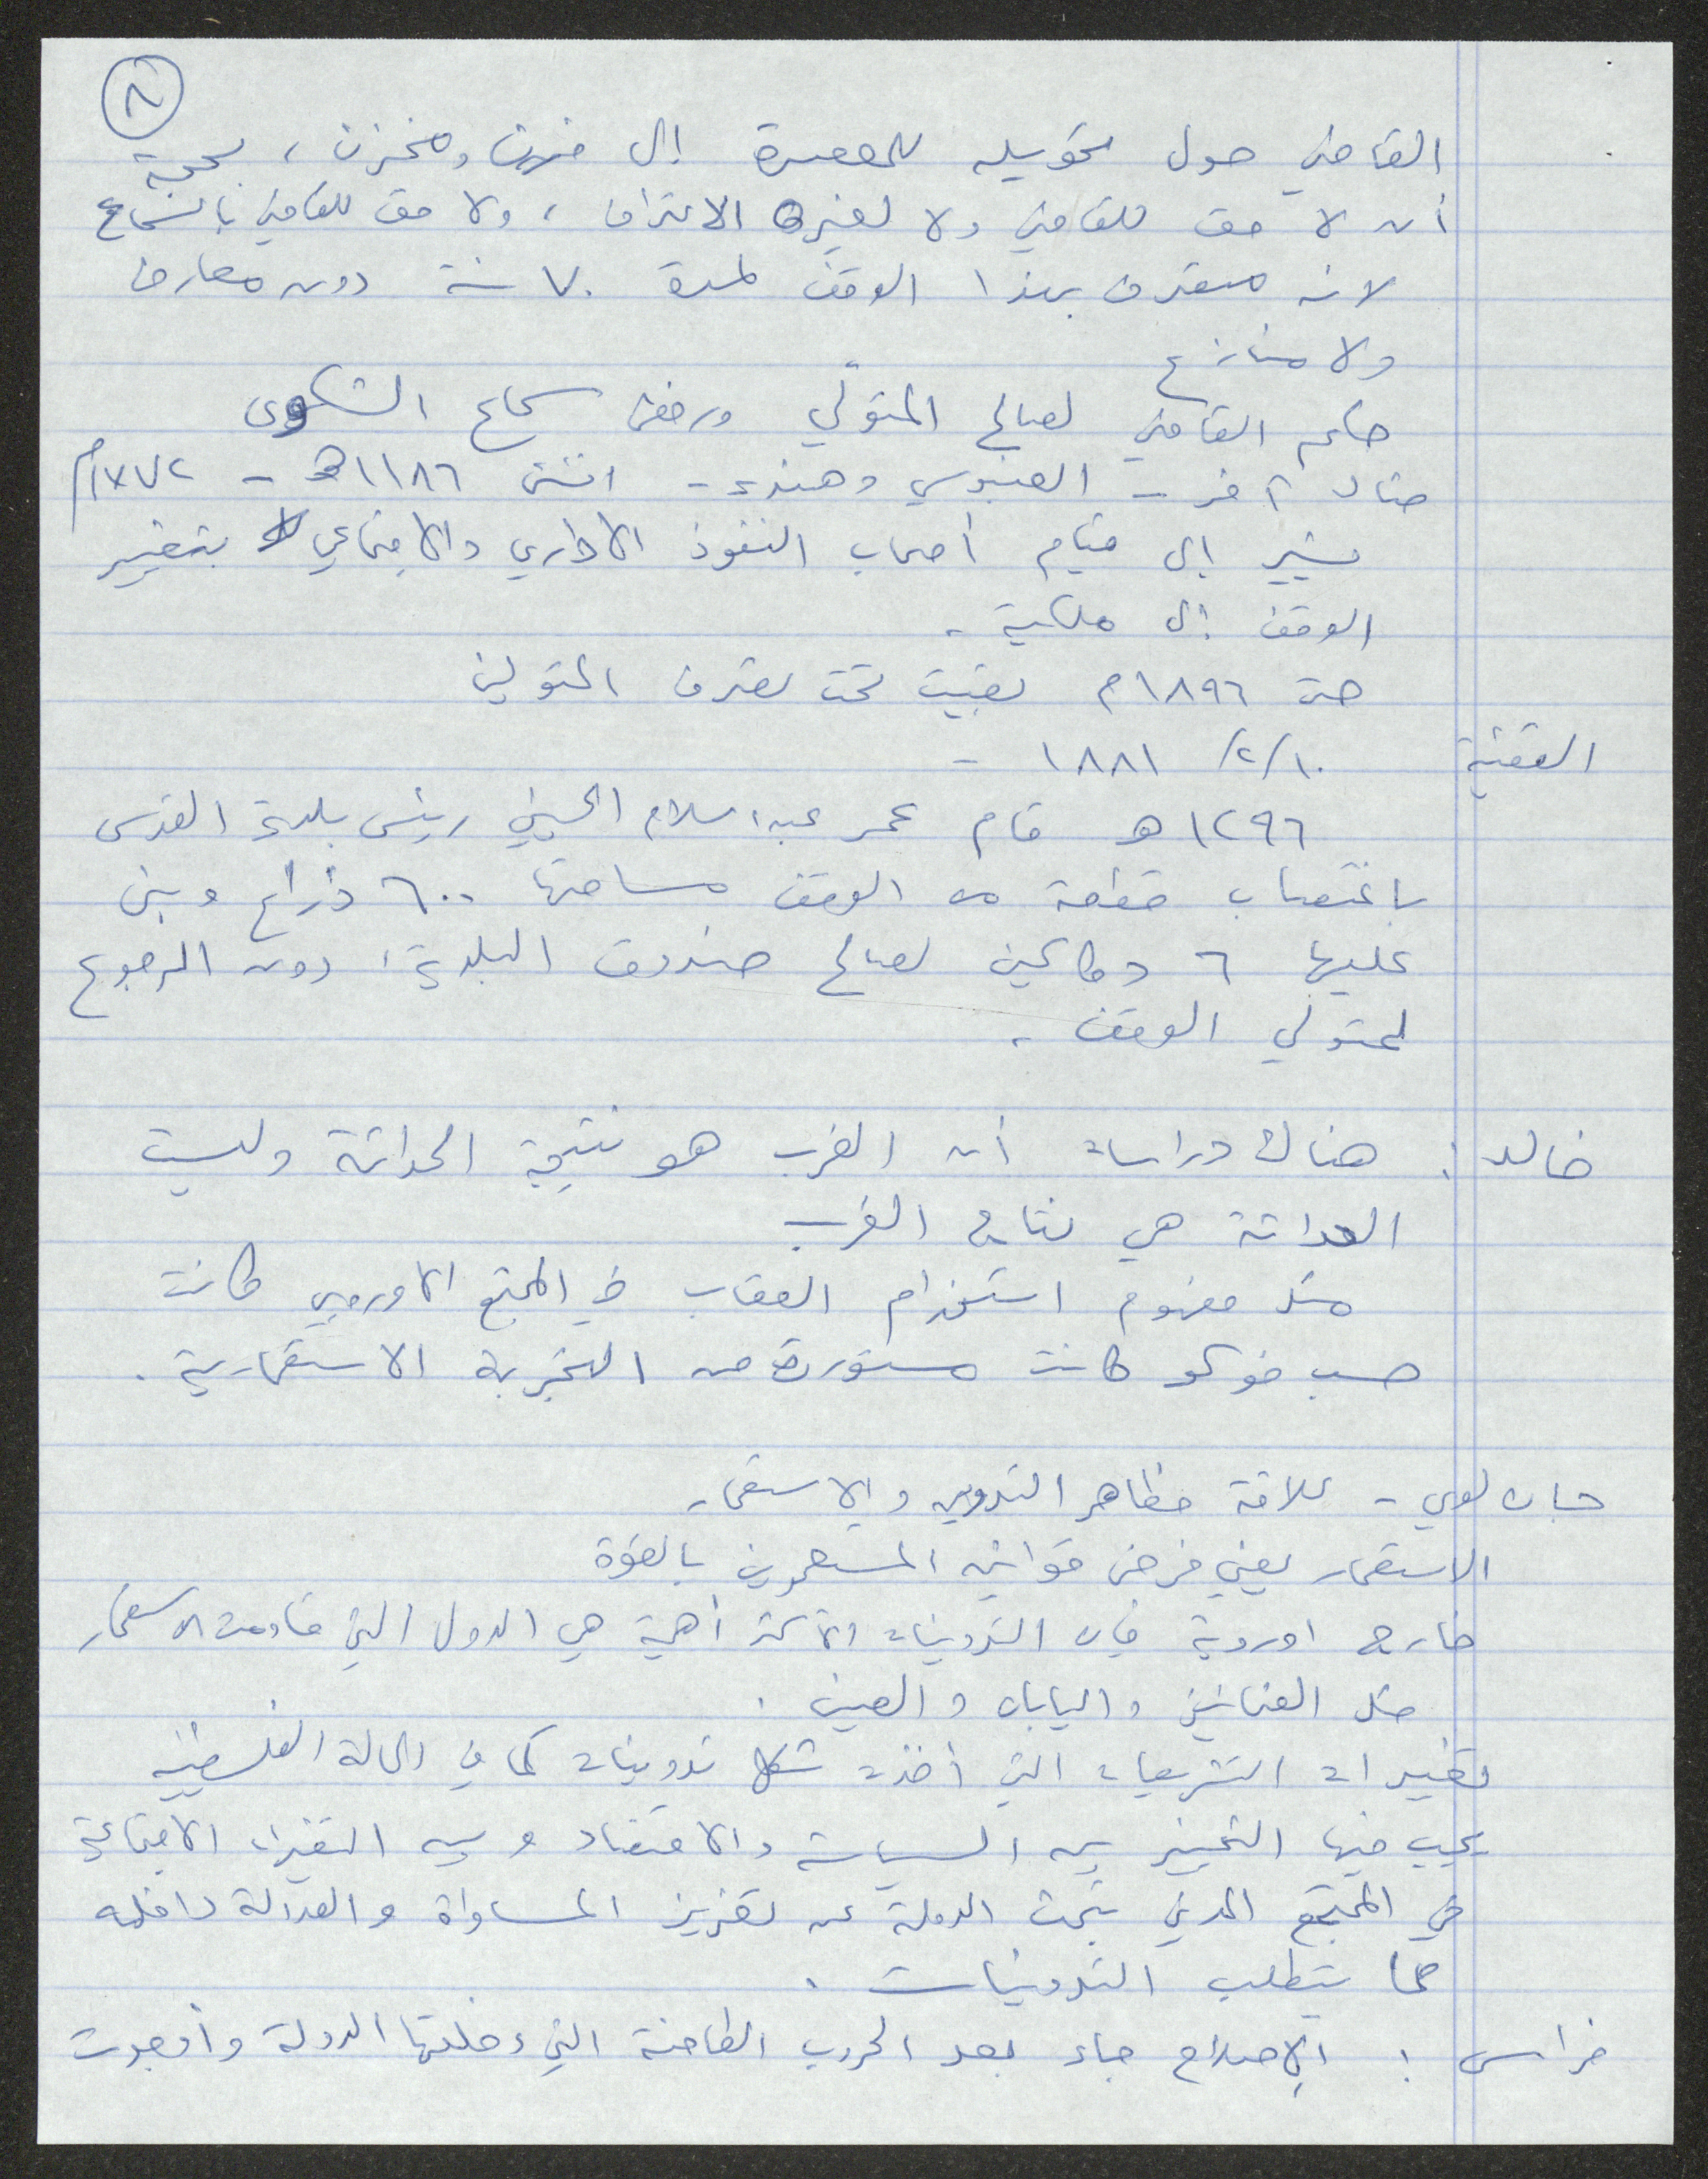 ٨
القاضي حول تحويله للمعصرة إلى فرن ومخزن، بحجة
أن لا حق للقاضي ولا لغيره الاعتراف، ولا حق للقاضي بالسماع
لانه متصرف بهذا الوقف لمدة ٧٠ سنة دون معارض
ولا منازع
حكم القاضي لصالح المتولّي ورفض سماع الشكوى
مثال آخر - العنبوسي وهندي - انشئ ١١٨٦هـ - ١٧٧٢م
يشير إلى قيام أصحاب النفوذ الاداري والاجتماعي بتغيير
الوقف إلى ملكية.
حتى ١٨٩٦م بقيت تحت تصرف المتولين
القضية ١٠/٢/ ١٨٨١ -
١٢٩٦ هـ قام عمر عبد السلام الحسيني رئيس بلدية القدس
باغتصاب قطعة من الوقف مساحتها ٦٠٠ ذراع وبنى
عليها ٦ دكاكين لصالح صندوق البلدية، دون الرجوع
لمتولي الوقف.
خالد: هناك دراسات أن الغرب هو نتيجة الحداثة وليست
الحداثة هي نتاج الغرب
مثل مفهوم استخدام العقاب في المجتمع الاوروبي كانت
حسب فوكو كانت مستوردة من التجربة الاستعمارية.
جان لوي - علاقة مظاهر التدوين والاستعمار
الاستعمار يعني فرض قوانين المستعمرين بالقوة
خارج اوروبة فإن التدوينات الاكثر أهمية هي الدول التي قاومت الاستعمار
مثل العثمانيين واليابان والصين.
تغييرات التشريعات التي أخذت شكل تدوينات كما في الحالة الفلسطينية
يجب فيها التمييز بين السياسة والاقتصاد وبين التغيرات الاجتماعية
في المجتمع المدني تبحث الدولة عن تعزيز المساواة والعدالة داخله
مما يتطلب التدوينات.
فراس: الإصلاح جاء بعد الحروب الطاحنة التي دخلتها الدولة